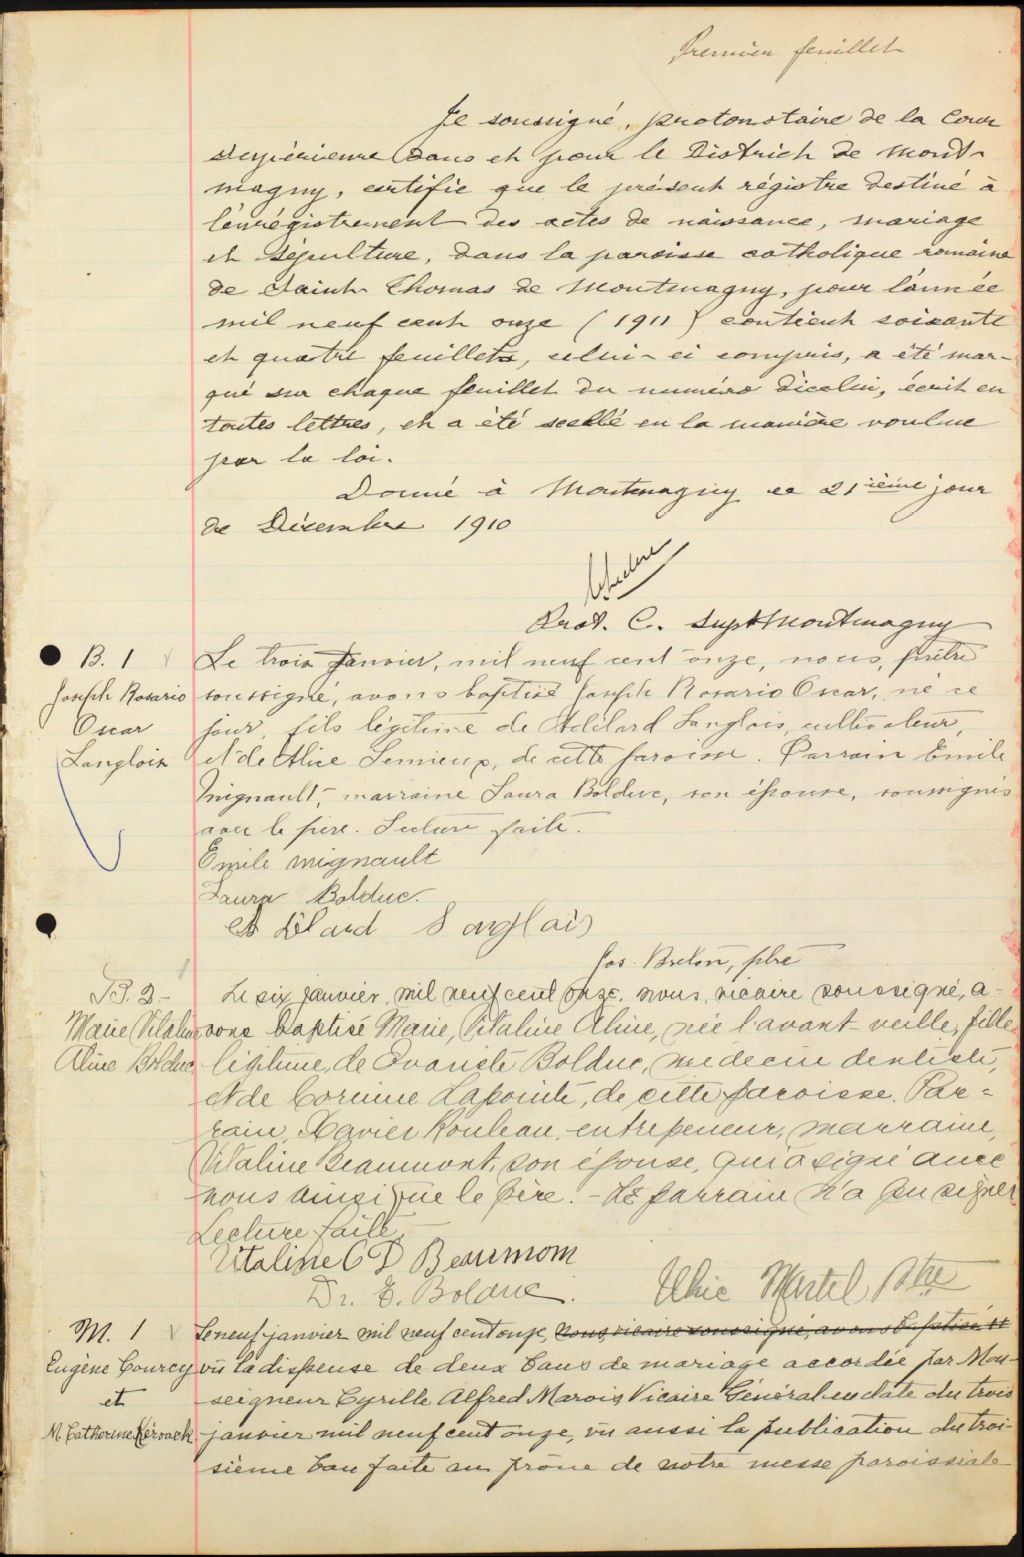 Premier feuillet
Je soussigné, protonotaire de la Cour
Supérieure dans et pour le District de Mont-
magny, certifie que le présent régistre destiné à
l'enrégistrement des actes de naissance, mariage
et sépulture, dans la paroisse catholique romaine
de Saint Thomas de Montmagny, pour l'année
mil neuf cent onze (1911) contient soixante
et quatre feuillets, celui-ci compris, a été mar-
qué sur chaque feuillet du numéro d'icelui, écrit en
toutes lettres, et a été scellé en la manière voulue
par la loi.
Donné à Montmagny ce 21ième jour
de Décembre 1910
Prot. C. Sup. Montmagny
B. 1
Joseph Rosario
Oscar
Langlois
Le trois janvier, mil neuf cent onze, nous, prêtre
soussigné, avons baptisé Joseph Rosario Oscar, né ce
jour, fils légitime de Adélard Langlois, cultivateur,
et de Alice Lemieux, de cette paroisse. Parrain Emile
Mignault, marraine Laura Bolduc, son épouse, soussignés
avec le père. Lecture faite.
Emile Mignault
Laura Bolduc.
Adélard Langlais
Jos. Breton, ptre
B. 2-
Marie Vitaline
Aline Bolduc
Le six janvier, mil neuf cent onze, nous, vicaire soussigné, a-
vons baptisé Marie, Vitaline Aline, née l'avant veille, fille
légitime, de Evariste Bolduc, médecin dentiste,
et de Corinne Lapointe, de cette paroisse. Par=
rain, Xavier Rouleau, entrepeneur, marraine,
Vitaline Beaumont, son épouse, qui a signé avec
nous ainsi que le père. - Le parrain n'a pu signer
Lecture faite,
Vitaline Beaumom
Dr. E. Bolduc.
Martel Ptre
M. 1
Eugène Courcy
et
M. Catherine Kéroack
Le neuf janvier mil neuf cent onze, nous vicaire soussigné, avons baptisé et
vu la dispense de deux bans de mariage accordée par Mon-
seigneur Cyrille Alfred Marois Vicaire Général en date du trois
janvier mil neuf cent onze, vu aussi la publication du troi-
sième ban faite au prône de notre messe paroissiale